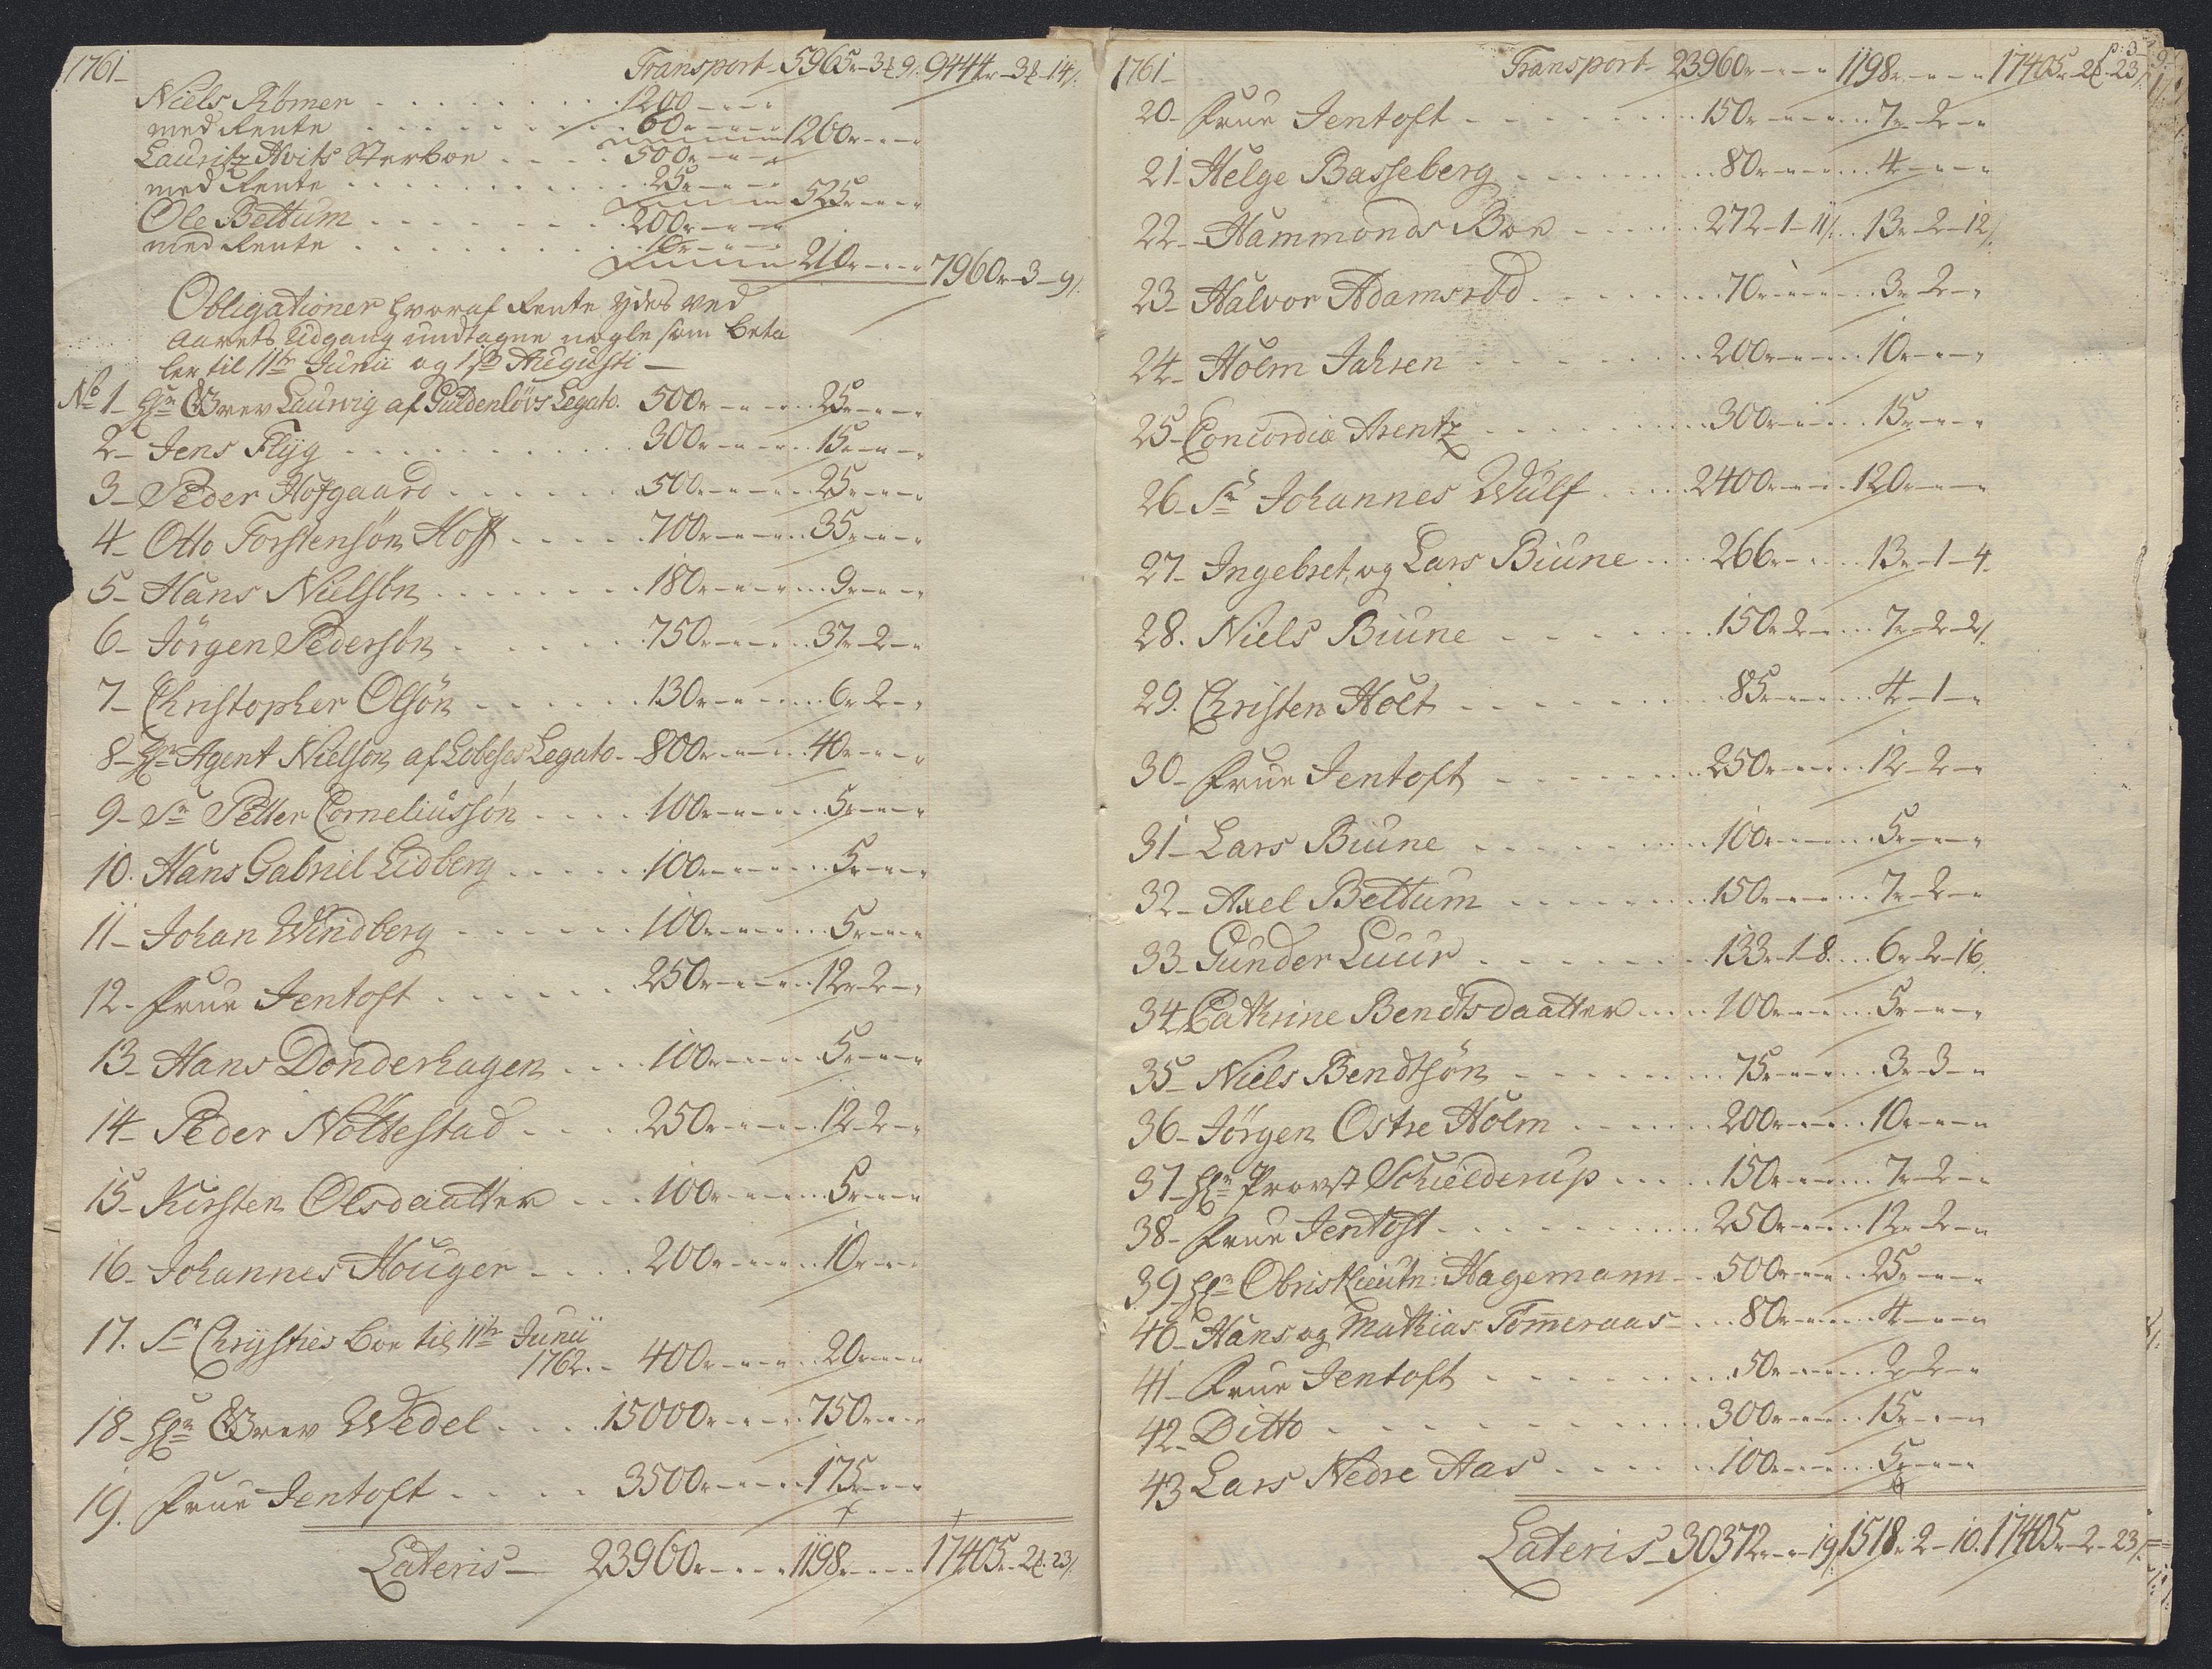 1761 Transport 5965r 3 9 9444r 3 14
Niels Römer 1200
med Rente 60 1260r
Lauritz Hvits Sterboe 500r
med Rente 25r 525r
Ole Bettum 200r
med Rente 10r 210r 7960r 3 9
Obligationer hvoraf Rente ydes ved
Aarets Udgang undtagne nogle som beta
ler til 11te Junii og Augusti
No 1 Hr Grev Laurvig af Güldenlövs Legato 500r 25r
2 Jens Flyg 300r 15r
3 Peder Hofgaard 500r 25r
4 Otto Torstensön Hoff 700r 35r
5 Hans Nielsön 180r 9r
6 Jörgen Pedersön 750r 37r 2
7 Christopher Olsön 130r 6r 2
8 Hr Agent Nielson af Lobeses Legato 800r 40r
9 Sr Petter Corneliussön 100r 5r
10. Hans Gabriel Lidberg 100r 5r
11 Johan Windberg 100r 5r
12. Frue Jentoft 250r 12r 2
13 Hans Donderhagen 100r 5r
14 Peder Nöttestad 250r 12 2
15 Kirsten Olsdaatter 100r 5r
16 Johannes Houger 200r 10r
17. Sr Chrysties Boe til 11te Junii
1762. 400r 20r
18 Hr Grev Wedel 15000r 750r
19. Frue Jentoft 3500r 175r
Lateris 23960r 1198r 17405r 2 23
p: 3
1761 Transport 23960r 1198r 17405r 2 23
20 Frue Jentoft 150r 7r 2
21 Helge Basseberg 80r 4
22 Hammonds Boe 272 1 11 13r 2 12
23 Halvor Adamsröd 70r 3r 2
24 Holm Jahren 200r 10r
25 Concordia Arentz 300r 15r
26 Sr Johannes Wulf 2400r 120r
27 Ingebret, og Lars Biune 266r 13r 1 4
28. Niels Biune 150r 2 7r 2 2
29. Christen Holt 85r 4 1
30 Frue Jentoft 250r 12 2
31 Lars Biune 100r 5r
32 Axel Bettum 150r 7r 2
33 Gunder Luur 133r 1 8 6r 2 16
34 Cathrine Bendtsdaatter 100r 5r
35 Niels Bendtsön 75r 3r 3
36 Jörgen Ostre Holm 200r 10r
37 Hr Provst Schielderup 150r 7r 2
38 Frue Jentoft 250r 12r 2
39 Hr Obristlieutn: Hagemann 500r 25r
40 Hans og Mathias Tomeraas 80r 4
41 Frue Jentoft 50r 2 2
42 Ditto 300r 15r
43 Lars Nedre Aas 100r 5r
Lateris 30372r 19 1518r 2 10 17405r 2 23